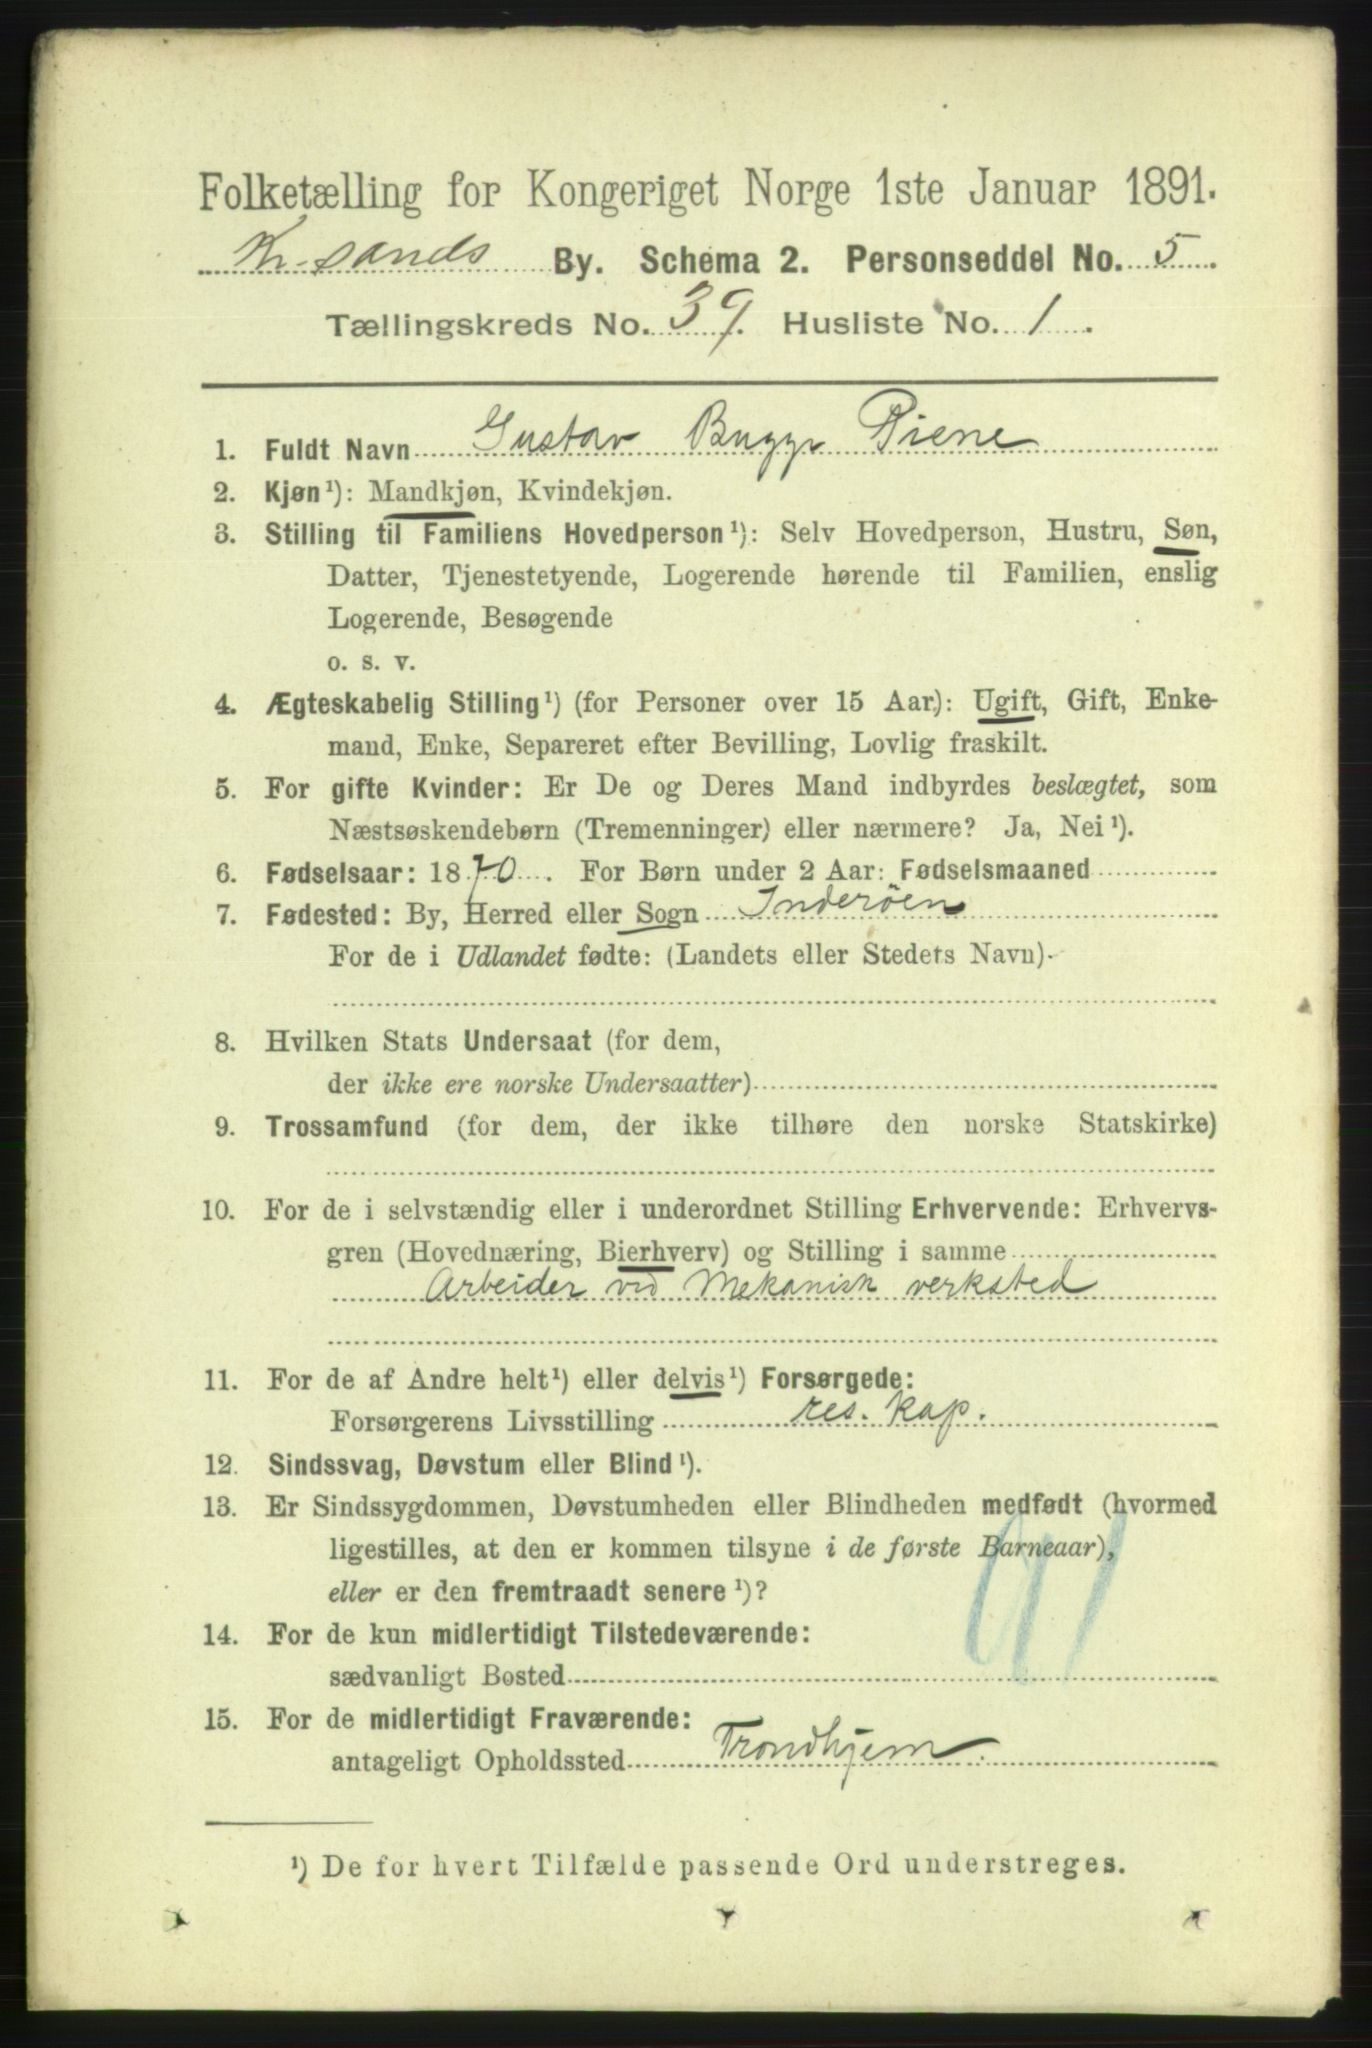 Folketælling for Kongeriget Norge 1ste Januar 1891.
Kr.sands By. Schema 2. Personseddel No. 5.
Tællingskreds No. 39. Husliste No. 1.
1. Fuldt Navn Gustav Bugge Piene
2. Kjøn¹): Mandkjøn, Kvindekjøn.
3. Stilling til Familiens Hovedperson¹): Selv Hovedperson, Hustru, Søn,
Datter, Tjenestetyende, Logerende hørende til Familien, enslig
Logerende, Besøgende
o. s. v.
4. Ægteskabelig Stilling¹) (for Personer over 15 Aar): Ugift, Gift, Enke-
mand, Enke, Separeret efter Bevilling, Lovlig fraskilt.
5. For gifte Kvinder: Er De og Deres Mand indbyrdes beslægtet, som
Næstsøskendebørn (Tremenninger) eller nærmere? Ja, Nei¹).
6. Fødselsaar: 1870. For Børn under 2 Aar: Fødselsmaaned
7. Fødested: By, Herred eller Sogn Inderöen
For de i Udlandet fødte: (Landets eller Stedets Navn)
8. Hvilken Stats Undersaat (for dem,
der ikke ere norske Undersaatter)
9. Trossamfund (for dem, der ikke tilhøre den norske Statskirke)
10. For de i selvstændig eller i underordnet Stilling Erhvervende: Erhvervs-
gren (Hovednæring, Bierhverv) og Stilling i samme
Arbeider ved Mekanisk verksted
11. For de af Andre helt¹) eller delvis¹) Forsørgede:
Forsørgerens Livsstilling res. kap.
12. Sindssvag, Døvstum eller Blind¹).
13. Er Sindssygdommen, Døvstumheden eller Blindheden medfødt (hvormed
ligestilles, at den er kommen tilsyne i de første Barneaar),
eller er den fremtraadt senere¹)?
14. For de kun midlertidigt Tilstedeværende:
sædvanligt Bosted
15. For de midlertidigt Fraværende:
antageligt Opholdssted Trondhjem.
¹) De for hvert Tilfælde passende Ord understreges.